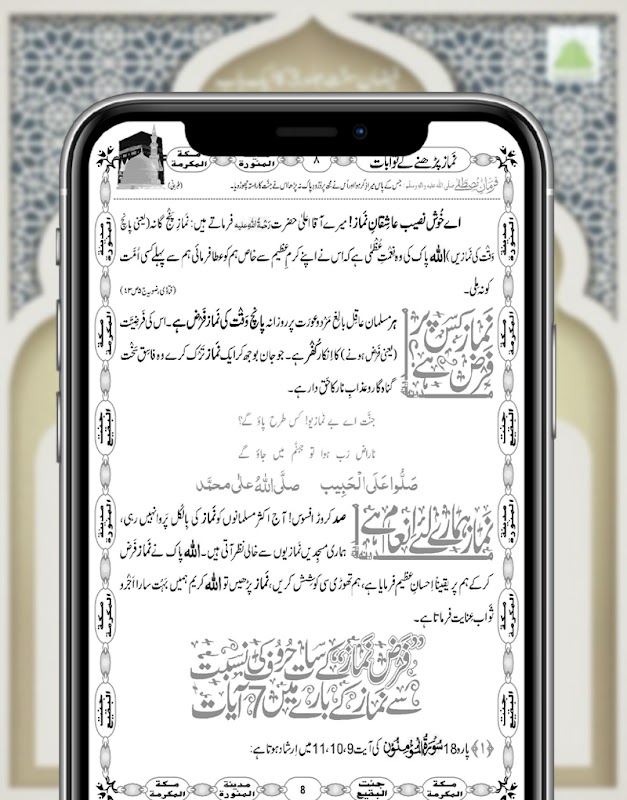 مكة المكرمة
المدينة المنورة
٨
نماز پڑھنے کے ثوابات
فرمانِ مصطفےٰ صلی اللہ علیہ والہ وسلم: جس کے پاس میرا ذکر ہوا اور اُس نے مجھ پر دُرُودِ پاک نہ پڑھا اس نے جنّت کا راستہ چھوڑ دیا۔ (طبرانی)
اے خُوش نصیب عاشِقانِ نَماز! میرے آقا اعلیٰ حضرت رَحْمَةُ اللهِ عليه فرماتے ہیں: نَمازِ پنْج گانہ (یعنی پانچ
وَقْت کی نَمازیں) اللہ پاک کی وہ نعمتِ عُظْمٰی ہے کہ اس نے اپنے کرمِ عظیم سے خاص ہم کو عطا فرمائی ہم سے پہلے کسی اُمّت
کو نہ ملی۔ (فتاوٰی رضویہ ج۵ص۴۳)
نَماز کس پر فرض ہے
ہر مسلمان عاقِل بالِغ مَرْد و عورَت پر روزانہ پانچ وَقْت کی نَماز فَرْض ہے۔ اس کی فَرْضِیَّت
(یعنی فَرْض ہونے) کا اِنکار کُفْر ہے۔ جو جان بوجھ کر ایک نَماز تَرْک کرے وہ فاسِق سَخْت
گناہ گار و عذابِ نار کا حَق دار ہے۔
جنّت اے بے نمازیو! کس طرح پاؤ گے؟
ناراض رَب ہوا تو جہنّم میں جاؤ گے
صَلُّوا عَلَى الْحَبِيب صلَّى اللهُ علٰى محمَّد
نماز ہمارے لئے انعام ہے
صد کروڑ افسوس! آج اکثر مسلمانوں کو نَماز کی بالکُل پَروا نہیں رہی،
ہماری مسجِدیں نَمازیوں سے خالی نظر آتی ہیں۔ اللہ پاک نے نَماز فَرْض
کر کے ہم پر یقیناً اِحسانِ عظیم فرمایا ہے، ہم تھوڑی سی کوشِش کریں، نَماز پڑھیں تو اللہ کریم ہمیں بَہُت سارا اَجْر و
ثواب عِنایت فرماتا ہے۔
”فَرْض نَماز“ کے سات حُرُوف کی نسبت
سے نماز کے بارے میں 7 آیات
﴿۱﴾ پارہ 18 سُوْرَۃُ الْمُؤْمِنُوْن کی آیت 9، 10، 11 میں اِرشاد ہوتا ہے:
مدينة المنورة
مكة المكرمة
جنت البقيع
مدينة المنورة
مكة المكرمة
جنت البقيع
مكة المكرمة
مدينة المنورة
8
جنت البقيع
مكة المكرمة